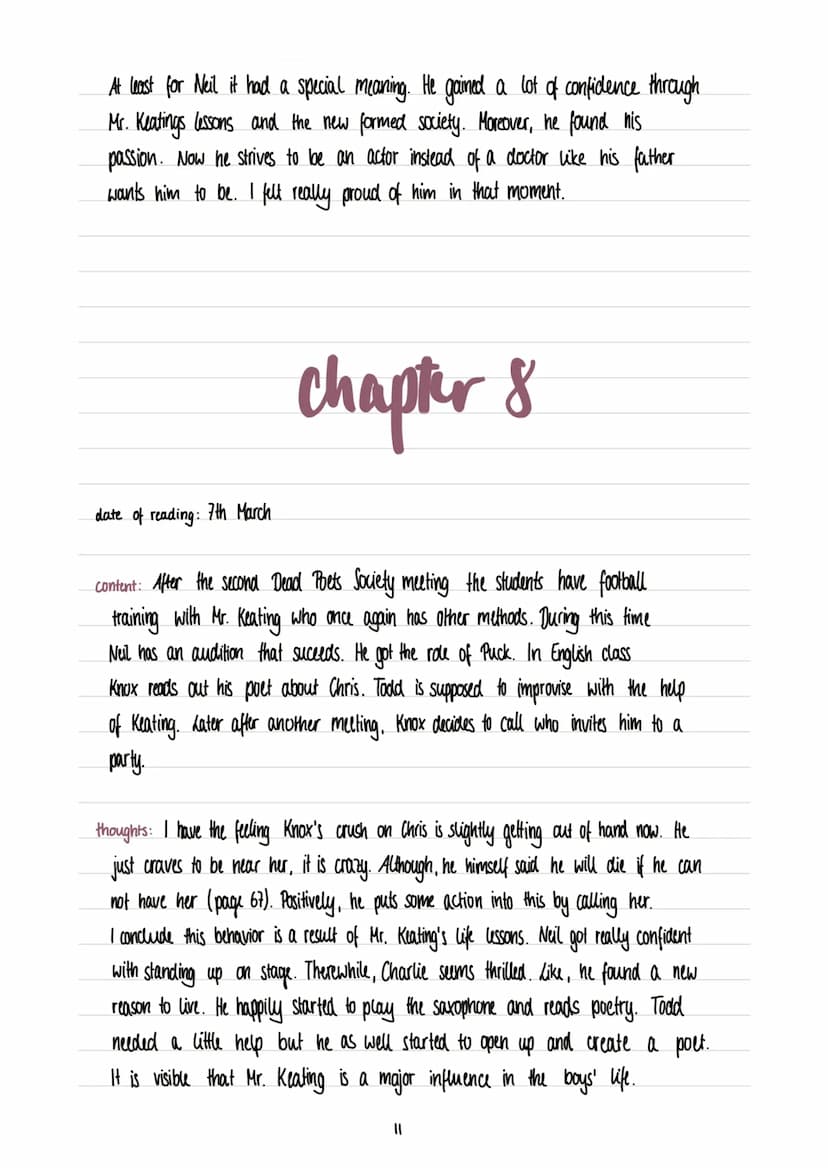 At least for Neil it had a special meaning. He gained a lot of confidence through
Mr. Keatings lessons and the new formed society. Moreover, he found his
passion. Now he strives to be an actor instead of a doctor like his father
wants him to be. I felt really proud of him in that moment.
chapter 8
date of reading: 7th March
content: After the second Dead Poets Society meeting the students have football
training with Mr. Keating who once again has other methods. During this time
Neil has an audition that suceeds. He got the role of Puck. In English class
Knox reads out his poet about Chris. Todd is supposed to improvise with the help
of Keating. Later after another meeting, Knox decides to call who invites him to a
party.
thoughts: I have the feeling Knox's crush on Chris is slightly getting out of hand now. He
just craves to be near her, it is crazy. Although, he himself said he will die if he can
not have her (page 67). Positively, he puts some action into this by calling her.
I conclude this behavior is a result of Mr. Keating's life lessons. Neil got really confident
with standing up on stage. Therewhile, Charlie seems thrilled. Like, he found a new
reason to live. He happily started to play the saxophone and reads poetry. Todd
needed a little help but he as well started to open up and create a poet.
It is visible that Mr. Keating is a major influence in the boys' life.
11